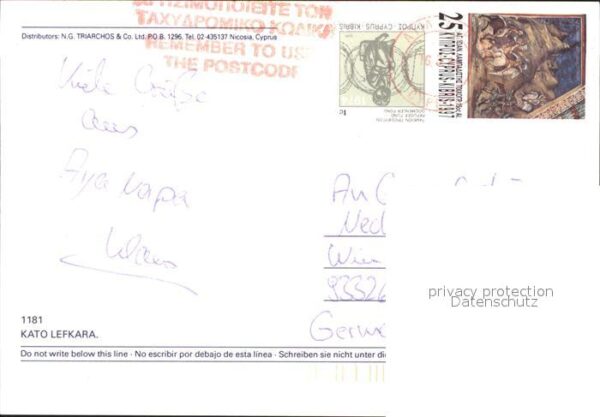 ΧΡΗΣΙΜΟΠΟΙΕΙΤΕ ΤΟΝ
ΤΑΧΥΔΡΟΜΙΚΟ ΚΩΔΙΚΑ
REMEMBER TO USE
THE POSTCODE
Distributors: N.G. TRIARCHOS & Co. Ltd. P.O.B. 1296, Tel. 02 435137 Nicosia, Cyprus
ΚΥΠΡΟΣ - CYPRUS - KIBRIS
1994
1c
REFUGEE FUND
25
ΚΥΠΡΟΣ-CYPRUS-KIBRIS-1997
Viele Grüße
aus
Aya Napa
Klaus
An
Ned
Wien
93326
Germ
privacy protection
Datenschutz
1181
KATO LEFKARA.
Do not write below this line - No escribir por debajo de esta línea - Schreiben sie nicht unter di